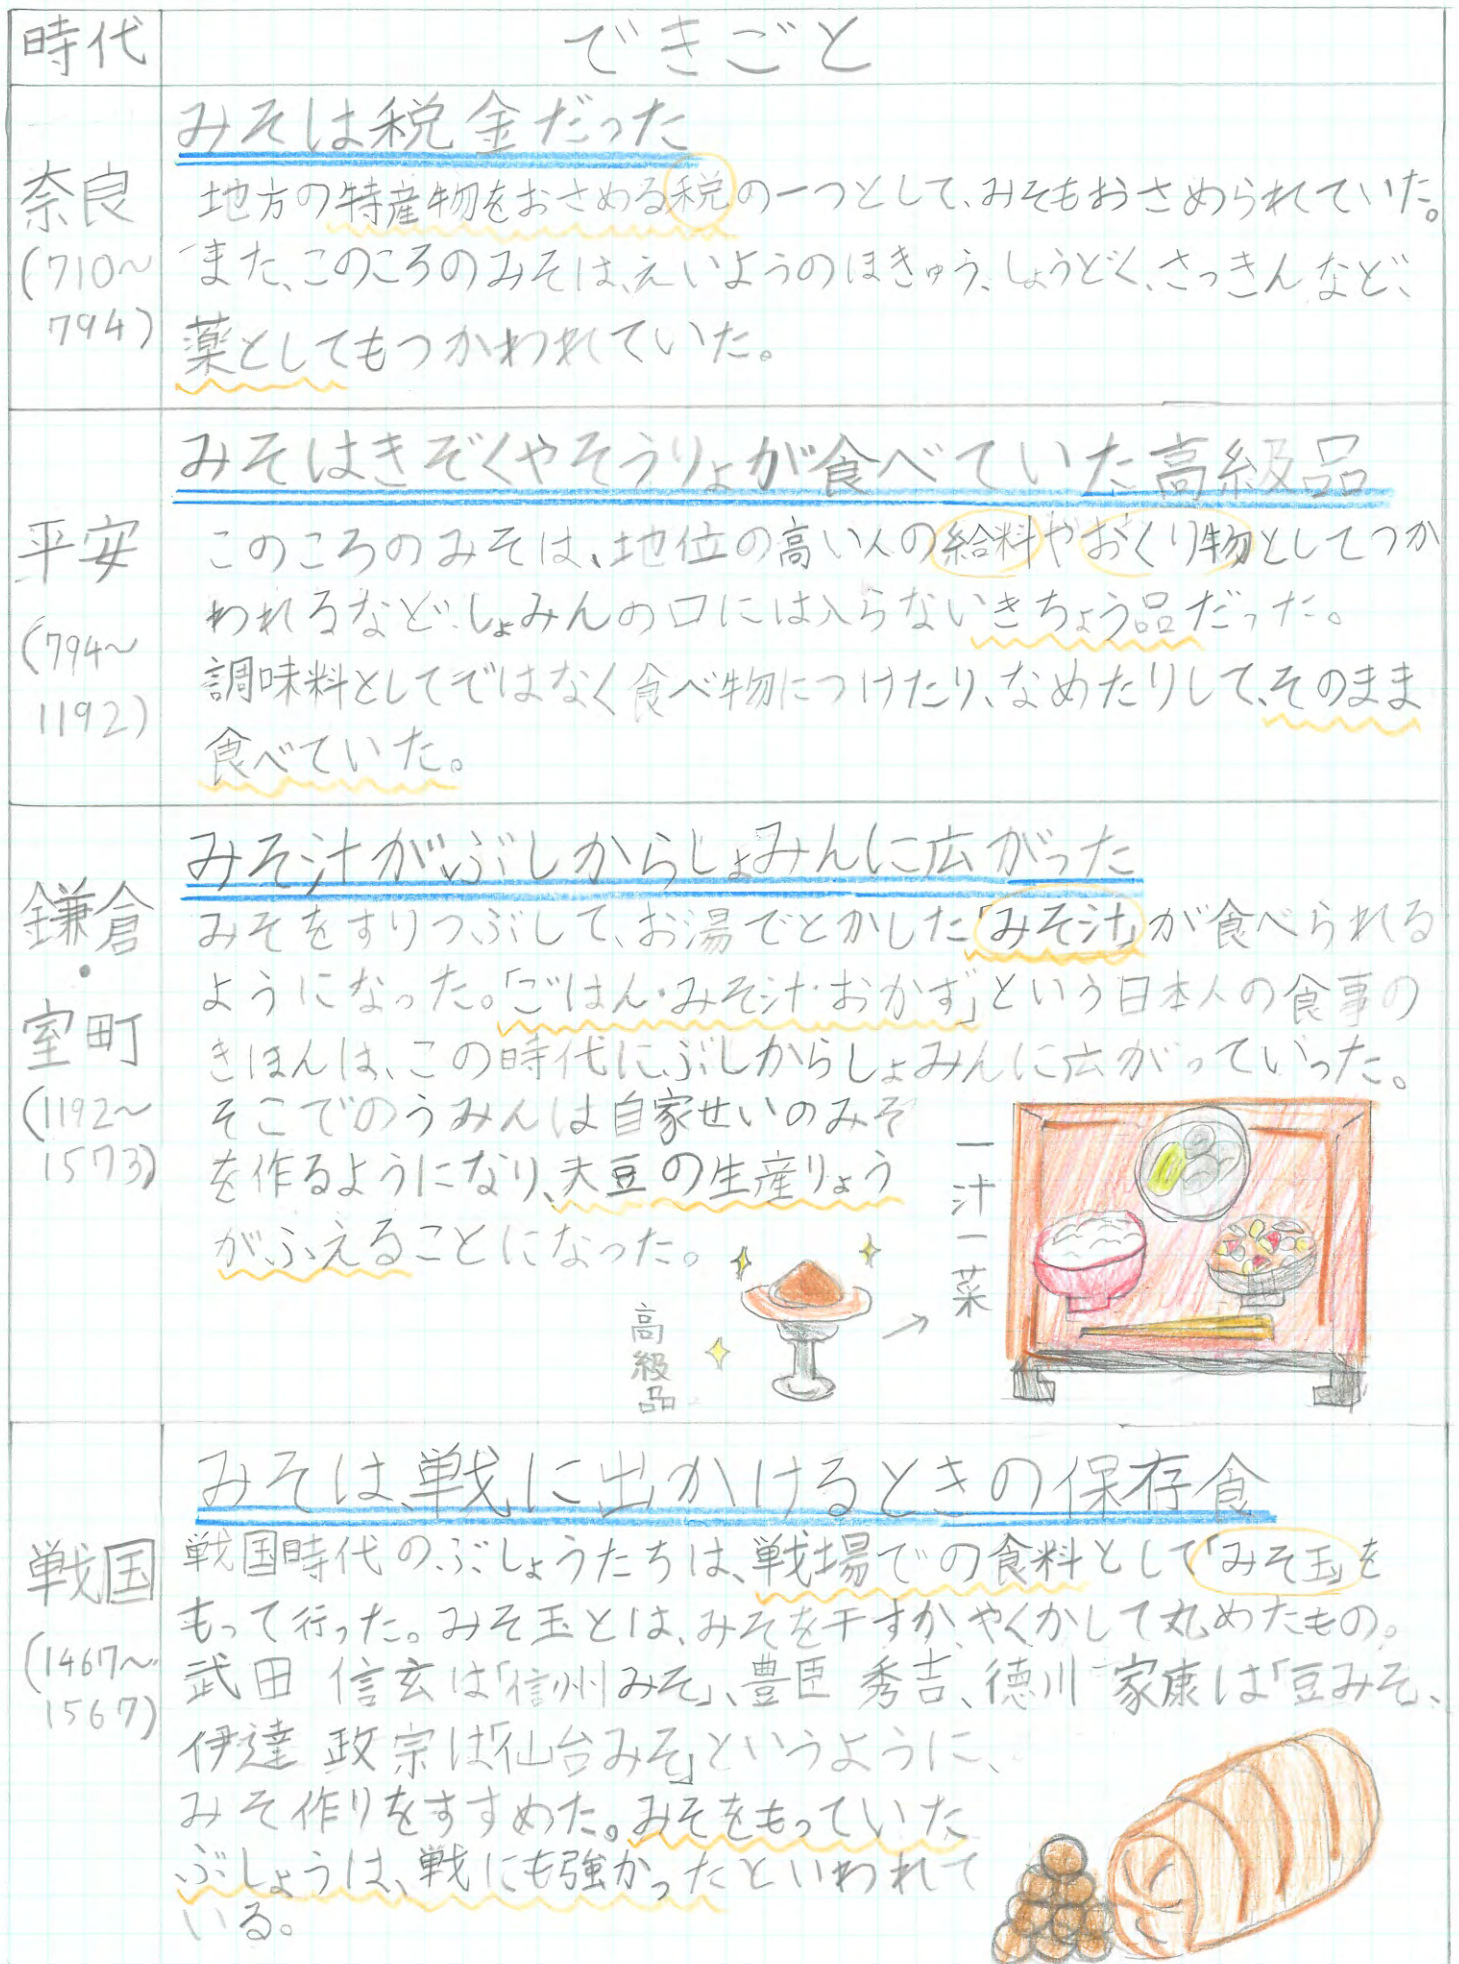 時代
できごと
奈良
(710～
794)
みそは税金だった
地方の特産物をおさめる税の一つとして、みそもおさめられていた。
また、このころのみそは、えいようのほきゅう、しょうどく、さっきんなど、
薬としてもつかわれていた。
平安
(794～
1192)
みそはきぞくやそうりょが食べていた高級品
このころのみそは、地位の高い人の給料やおくり物としてつか
われるなど、しょみんの口には入らないきちょう品だった。
調味料としてではなく食べ物につけたり、なめたりして、そのまま
食べていた。
鎌倉
・
室町
(1192～
1573)
みそ汁がぶしからしょみんに広がった
みそをすりつぶして、お湯でとかした「みそ汁」が食べられる
ようになった。「ごはん・みそ汁・おかず」という日本人の食事の
きほんは、この時代にぶしからしょみんに広がっていった。
そこでのうみんは自家せいのみそ
を作るようになり、大豆の生産りょう
がふえることになった。
高級品
一汁一菜
戦国
(1467～
1567)
みそは戦に出かけるときの保存食
戦国時代のぶしょうたちは、戦場での食料として「みそ玉」を
もって行った。みそ玉とは、みそを干すか、やくかして丸めたもの。
武田 信玄は「信州みそ」、豊臣 秀吉、徳川 家康は「豆みそ、
伊達 政宗は「仙台みそ」というように、
みそ作りをすすめた。みそをもっていた
ぶしょうは、戦にも強かったといわれて
いる。